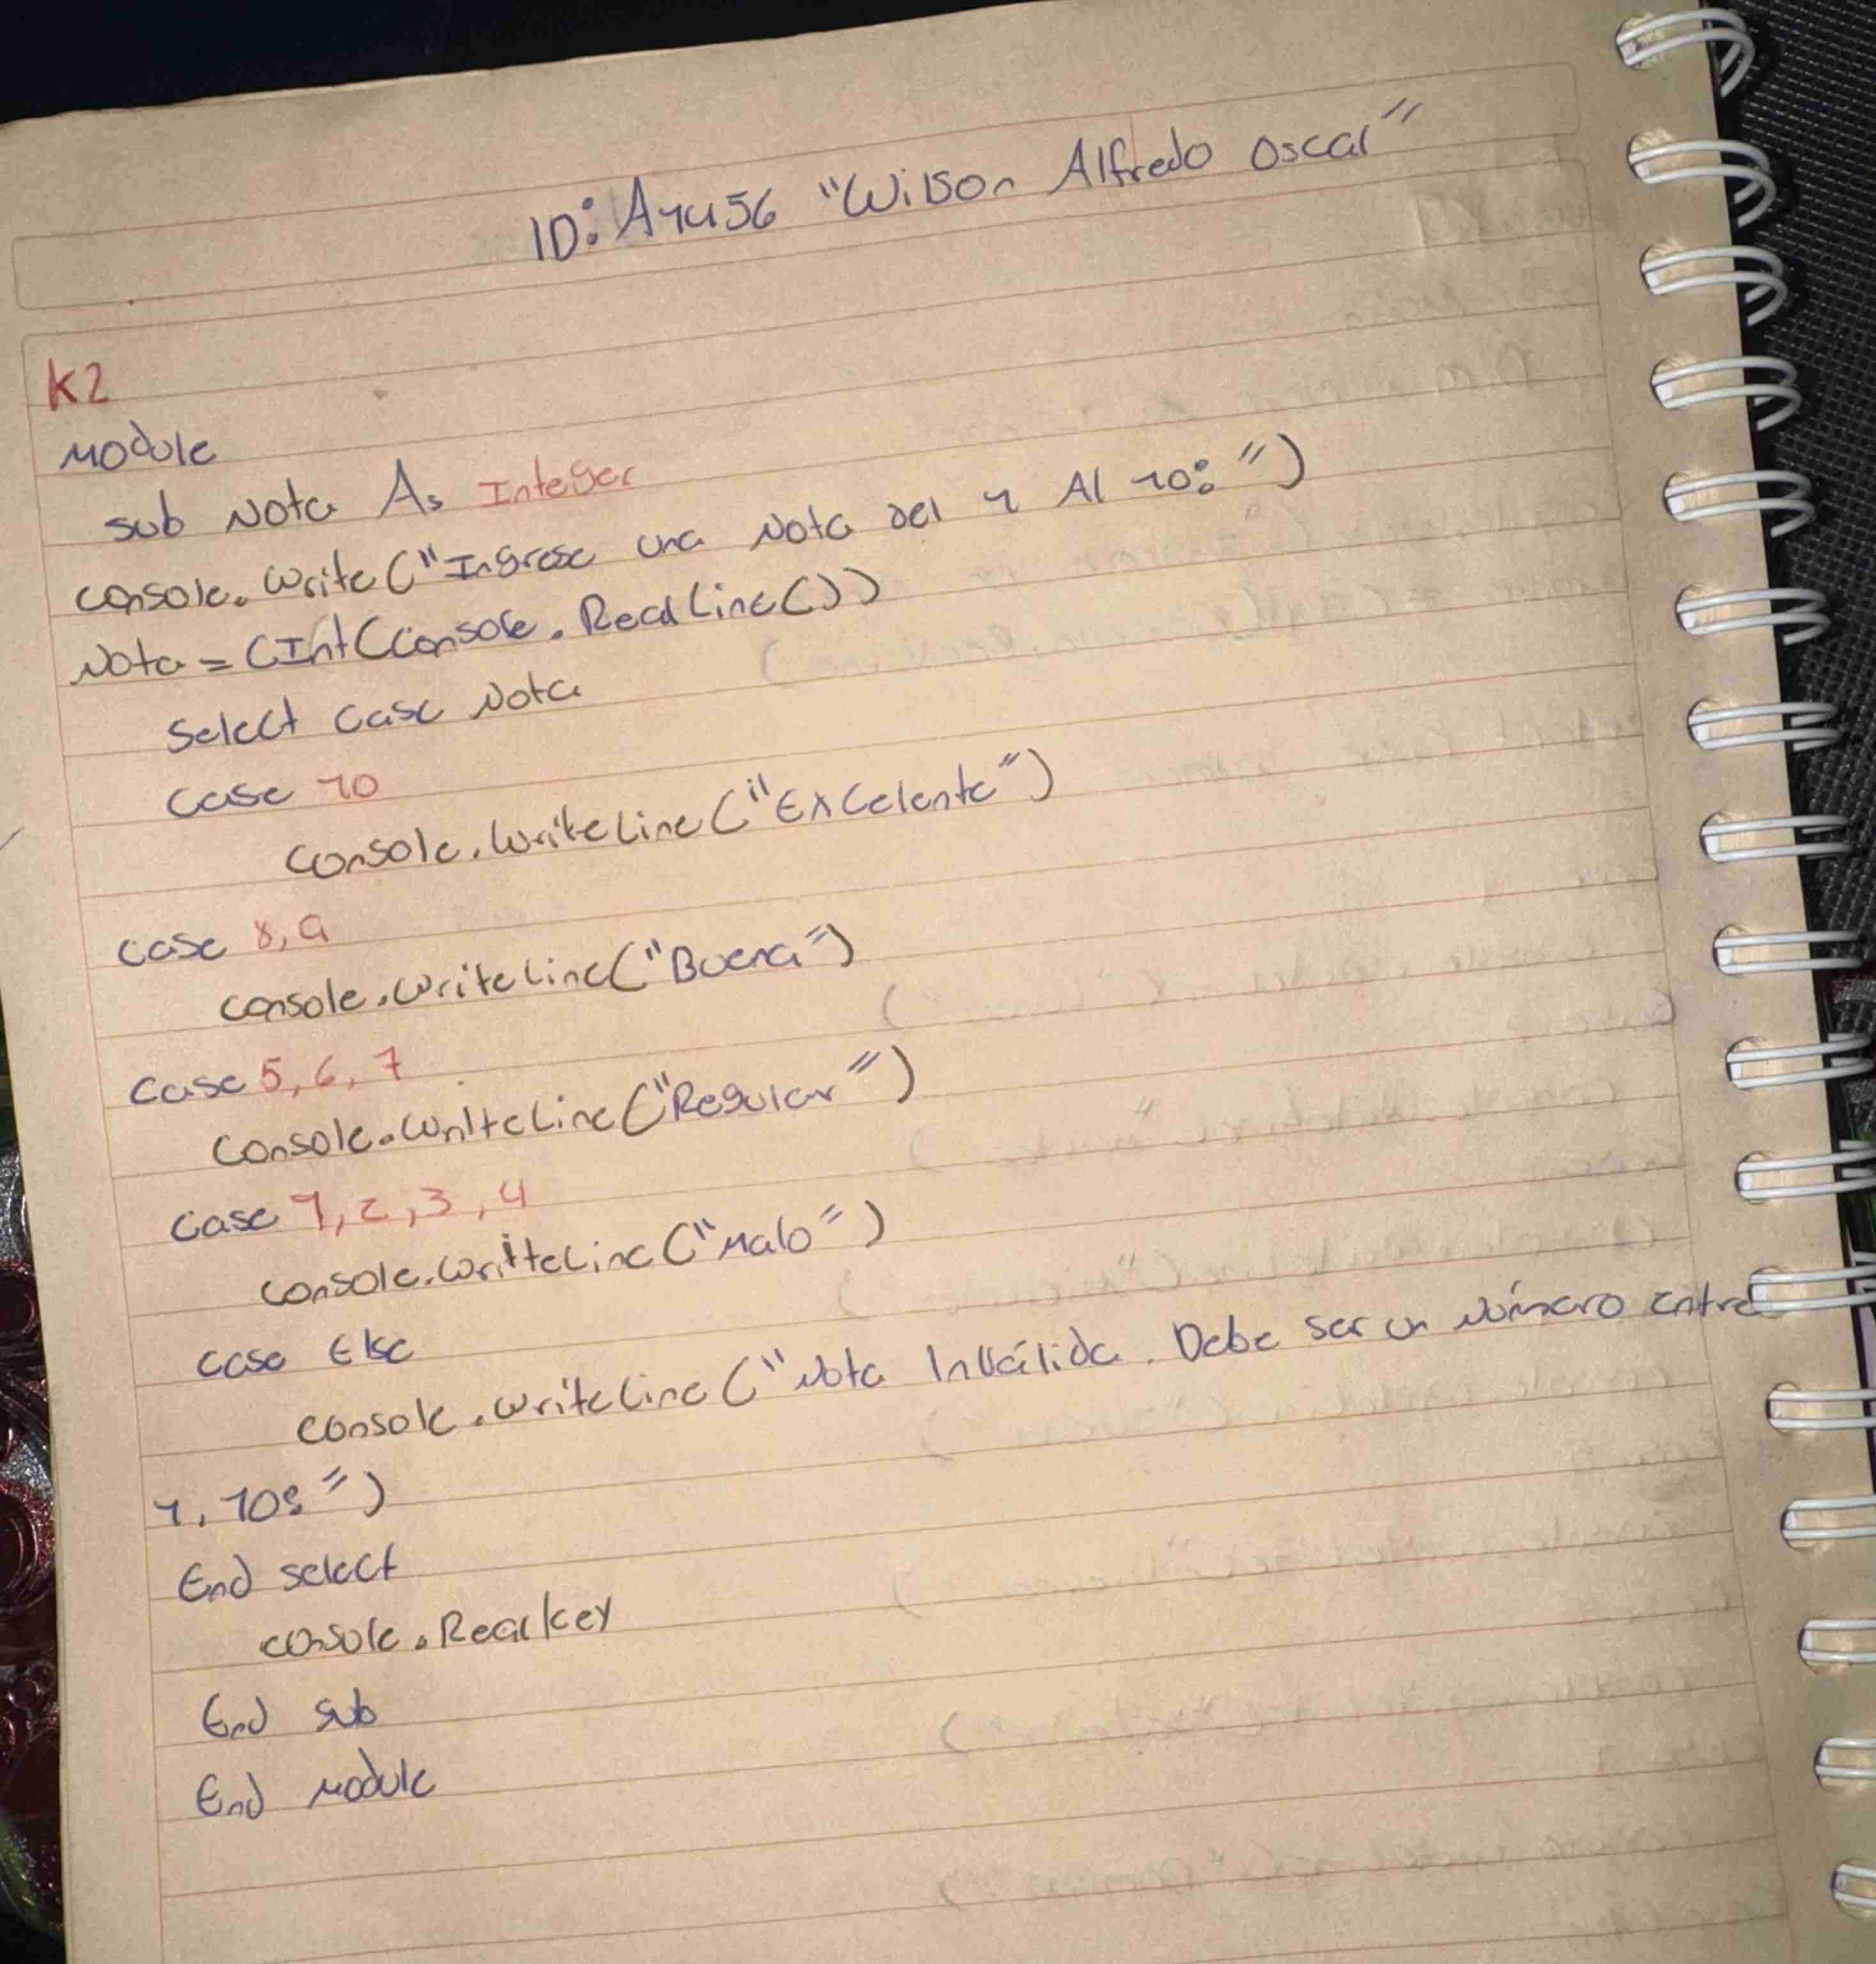 ID: A1456 "Wilson Alfredo Oscar"
K2
Module
Sub Nota As Integer
Console.Write("Ingrese una Nota del 1 Al 10: ")
Nota = CInt(Console.ReadLine())
Select Case Nota
Case 10
Console.WriteLine("Excelente")
Case 8, 9
Console.WriteLine("Buena")
Case 5, 6, 7
Console.WriteLine("Regular")
Case 1, 2, 3, 4
Console.WriteLine("Malo")
Case Else
Console.WriteLine("Nota Inválida. Debe ser un Número entre
1, 10: ")
End Select
Console.ReadKey
End Sub
End Module